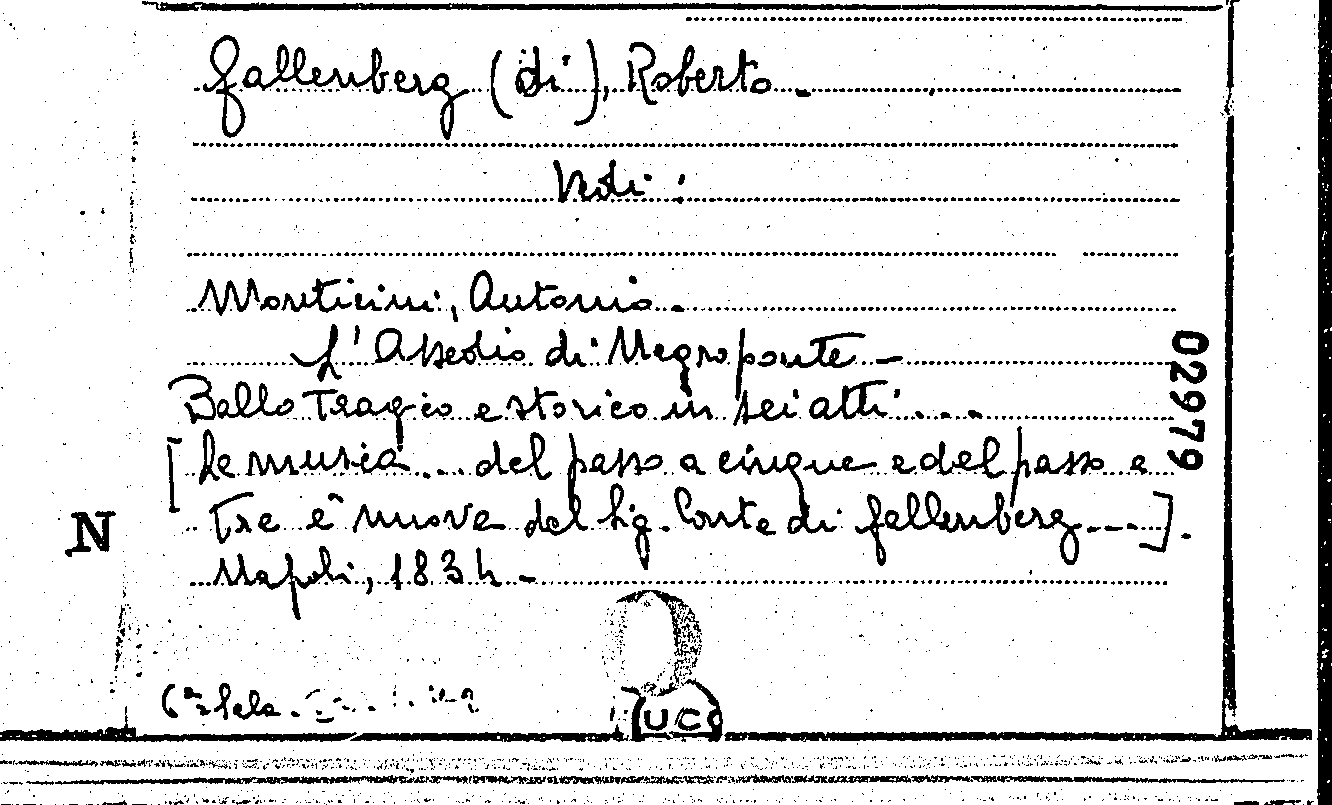 Fallenberg (di), Roberto.
Vedi:
Monticini, Antonio.
L'Assedio di Negroponte -
Ballo Tragico e storico in sei atti...
[La musica... del passo a cinque e del passo a
Tre è nuova del Sig. Conte di Fallenberg...].
Napoli, 1834 -
02979
N
6ª Sala.
UC